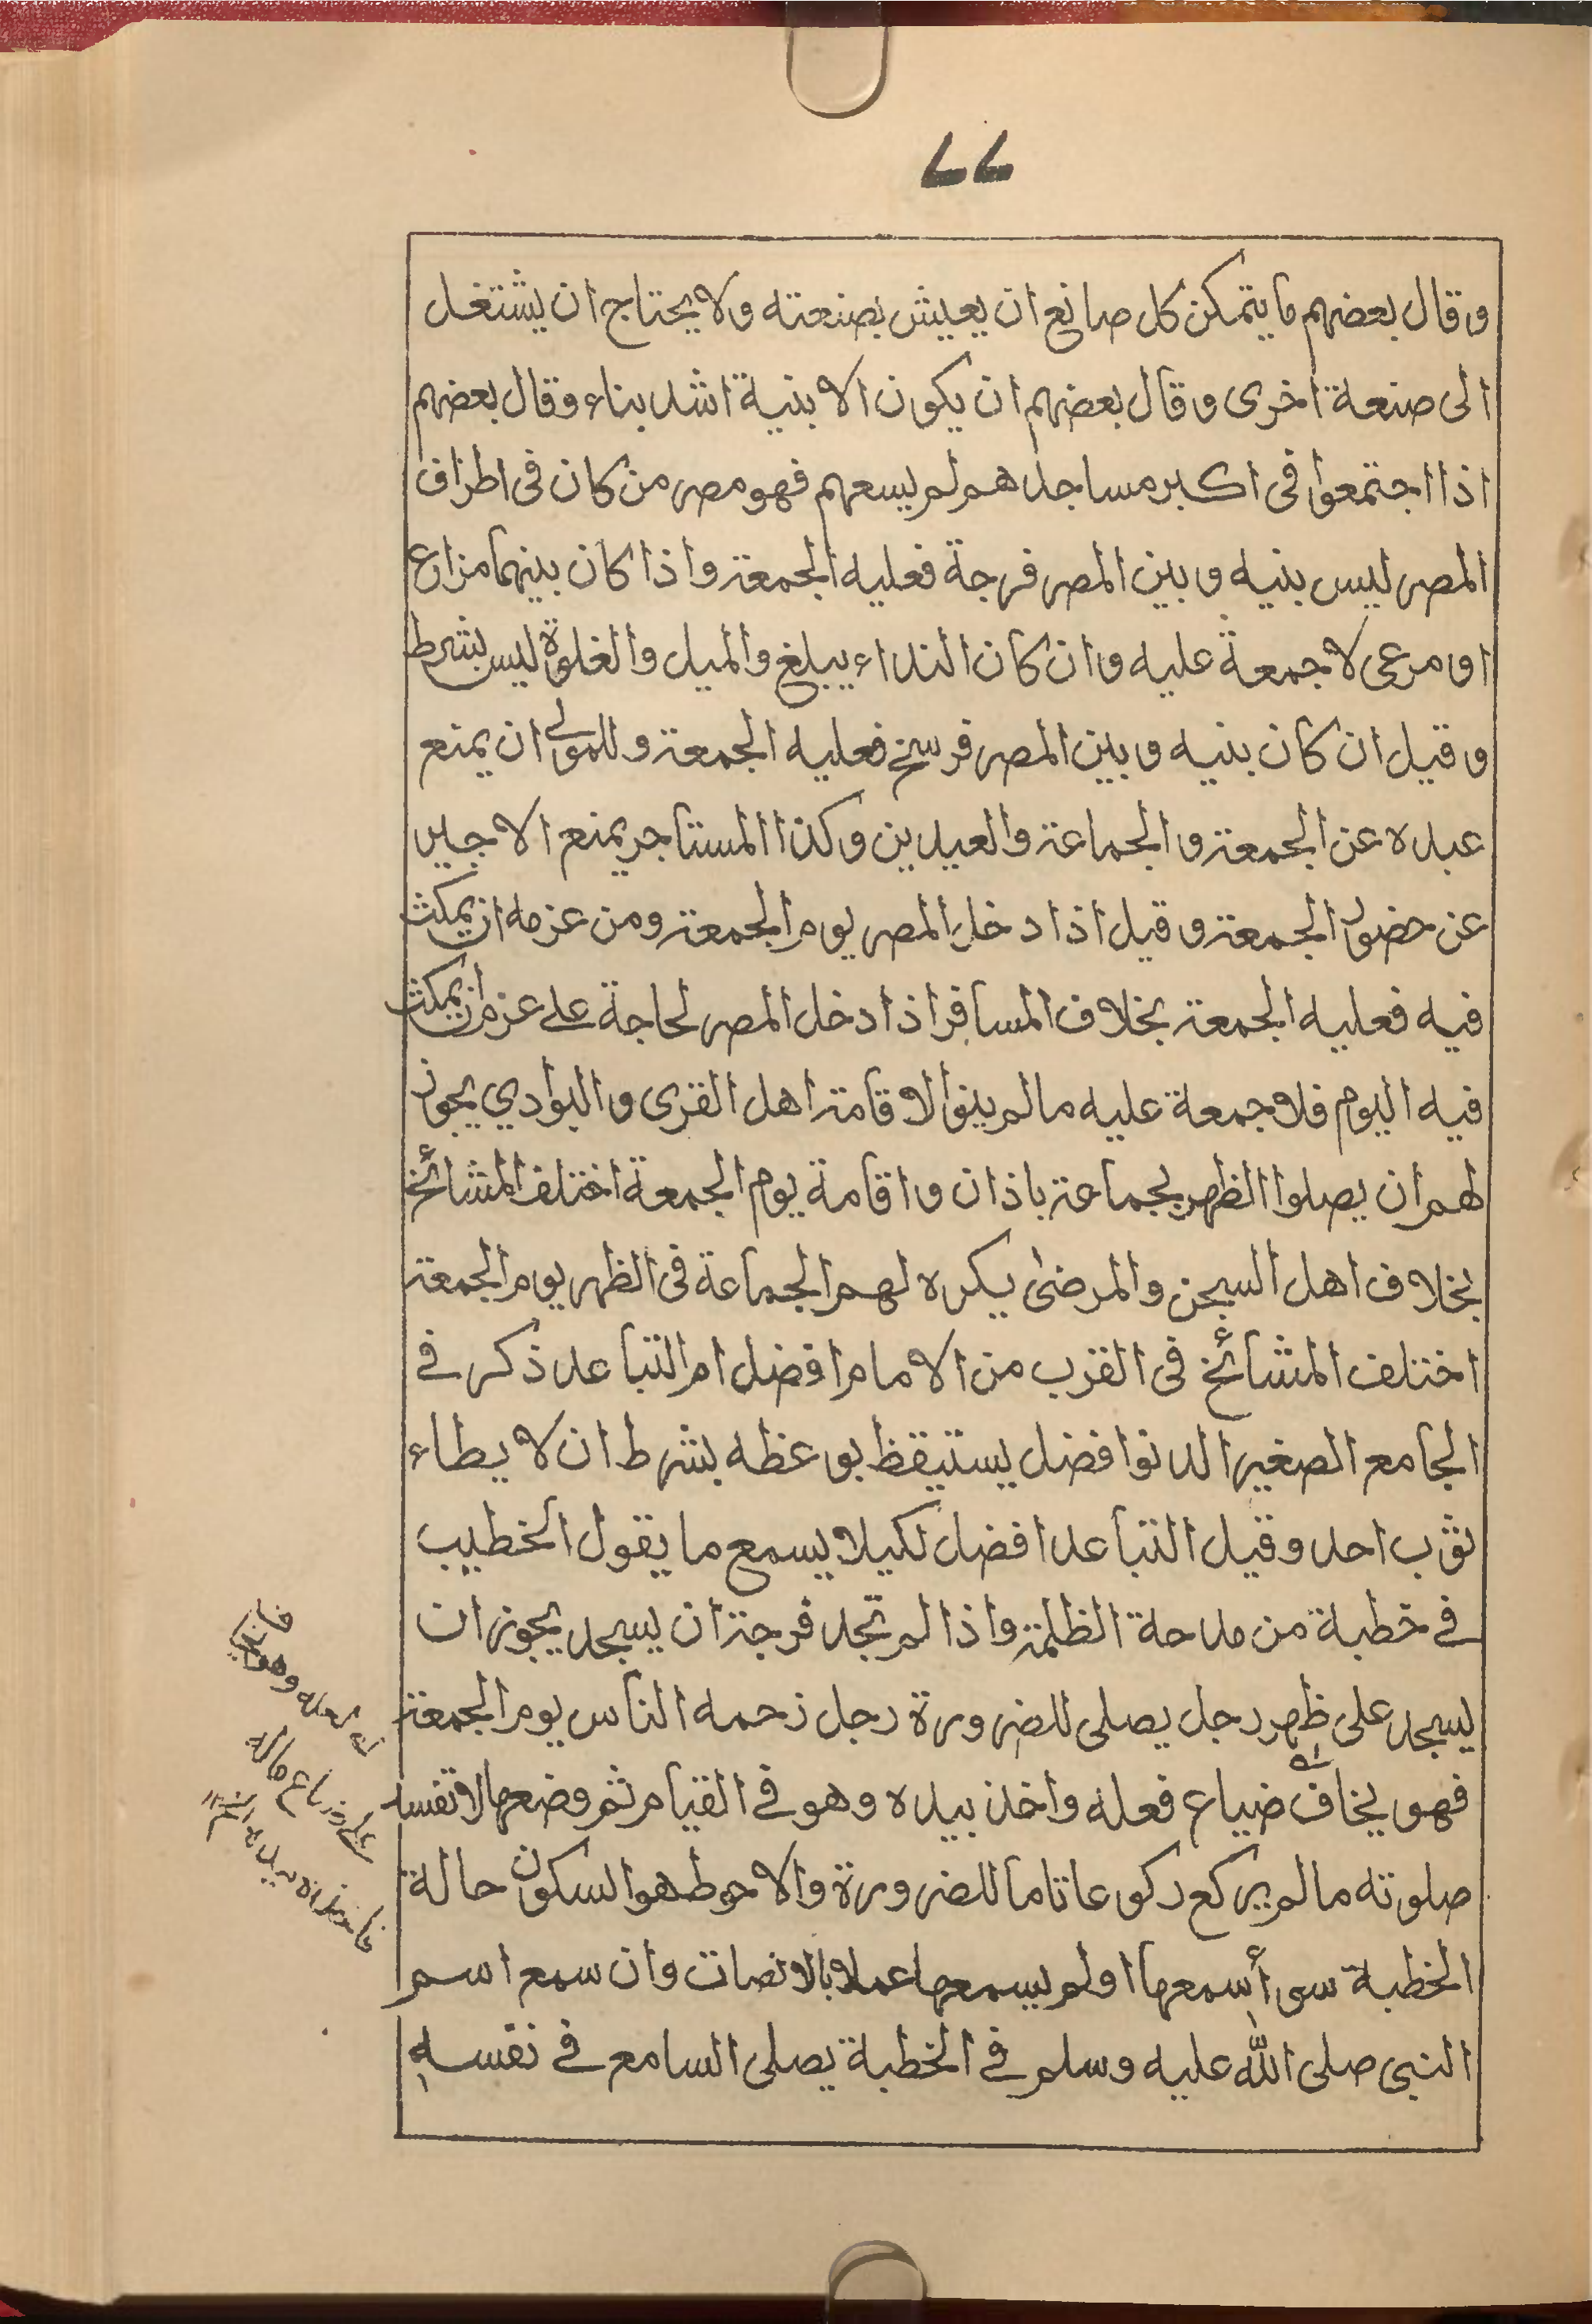 ٧٧
وقال بعضهم ما يتمكن كل صانع ان يعيش بصنعته ولا يحتاج ان يشتغل
الى صنعة اخرى وقال بعضهم ان يكون الابنية اشد بناء وقال بعضهم
اذا اجتمعوا فى اكبر مساجدهم لم يسعهم فهو مصر من كان فى اطراف
المصر ليس بنيه وبين المصر فرجة فعليه الجمعة واذا كان بينهما مزارع
او مرعى لا جمعة عليه وان كان النداء يبلغ والميل والغلوة ليس بشرط
وقيل ان كان بنيه وبين المصر فرسخ فعليه الجمعة وللمولى ان يمنع
عبده عن الجمعة والجماعة والعيدين وكذا المستاجر يمنع الاجير
عن حضور الجمعة وقيل اذا دخل المصر يوم الجمعة ومن عزمه ان يمكث
فيه فعليه الجمعة بخلاف المسافر اذا دخل المصر لحاجة على عزم ان يمكث
فيه اليوم فلا جمعة عليه مالم ينوا الاقامة اهل القرى والبوادي يجوز
لهم ان يصلوا الظهر بجماعة باذان واقامة يوم الجمعة اختلف المشائخ
بخلاف اهل السجن والمرضى يكره لهم الجماعة فى الظهر يوم الجمعة
اختلف المشائخ فى القرب من الامام افضل ام التباعد ذكر فى
الجامع الصغير الدنوا افضل يستيقظ بوعظه بشرط ان لا يطاء
ثوب احد وقيل التباعد افضل لكيلا يسمع ما يقول الخطيب
فى خطبة من مدحة الظلمة واذا لم تجد فرجة ان يسجد يجوز ان
يسجد على ظهر رجل يصلى للضرورة رجل زحمه الناس يوم الجمعة
فهو يخاف ضياع فعله واخذ بيده وهو فى القيام ثم وضعها لا تفسد
صلوته مالم يركع ركوعا تاما للضرورة والاحوط هو السكون حالة
الخطبة سوى أسمعها اولم يسمعها عملا بالانصات وان سمع اسم
النبى صلى الله عليه وسلم فى الخطبة يصلى السامع فى نفسه